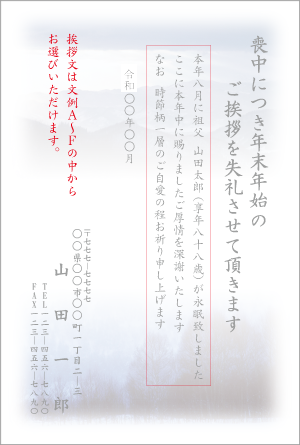 喪中につき年末年始の
ご挨拶を失礼させて頂きます
本年八月に祖父 山田太郎(享年八十八歳)が永眠致しました
ここに本年中に賜りましたご厚情を深謝いたします
なお 時節柄一層のご自愛の程お祈り申し上げます
令和〇〇年〇〇月
挨拶文は文例A〜Fの中から
お選びいただけます。
〒七七七-七七七七
〇〇県〇〇市〇〇町一丁目二―三
山田一郎
TEL 一二三―四五六―七八九〇
FAX 一二三―四五六―七八九〇